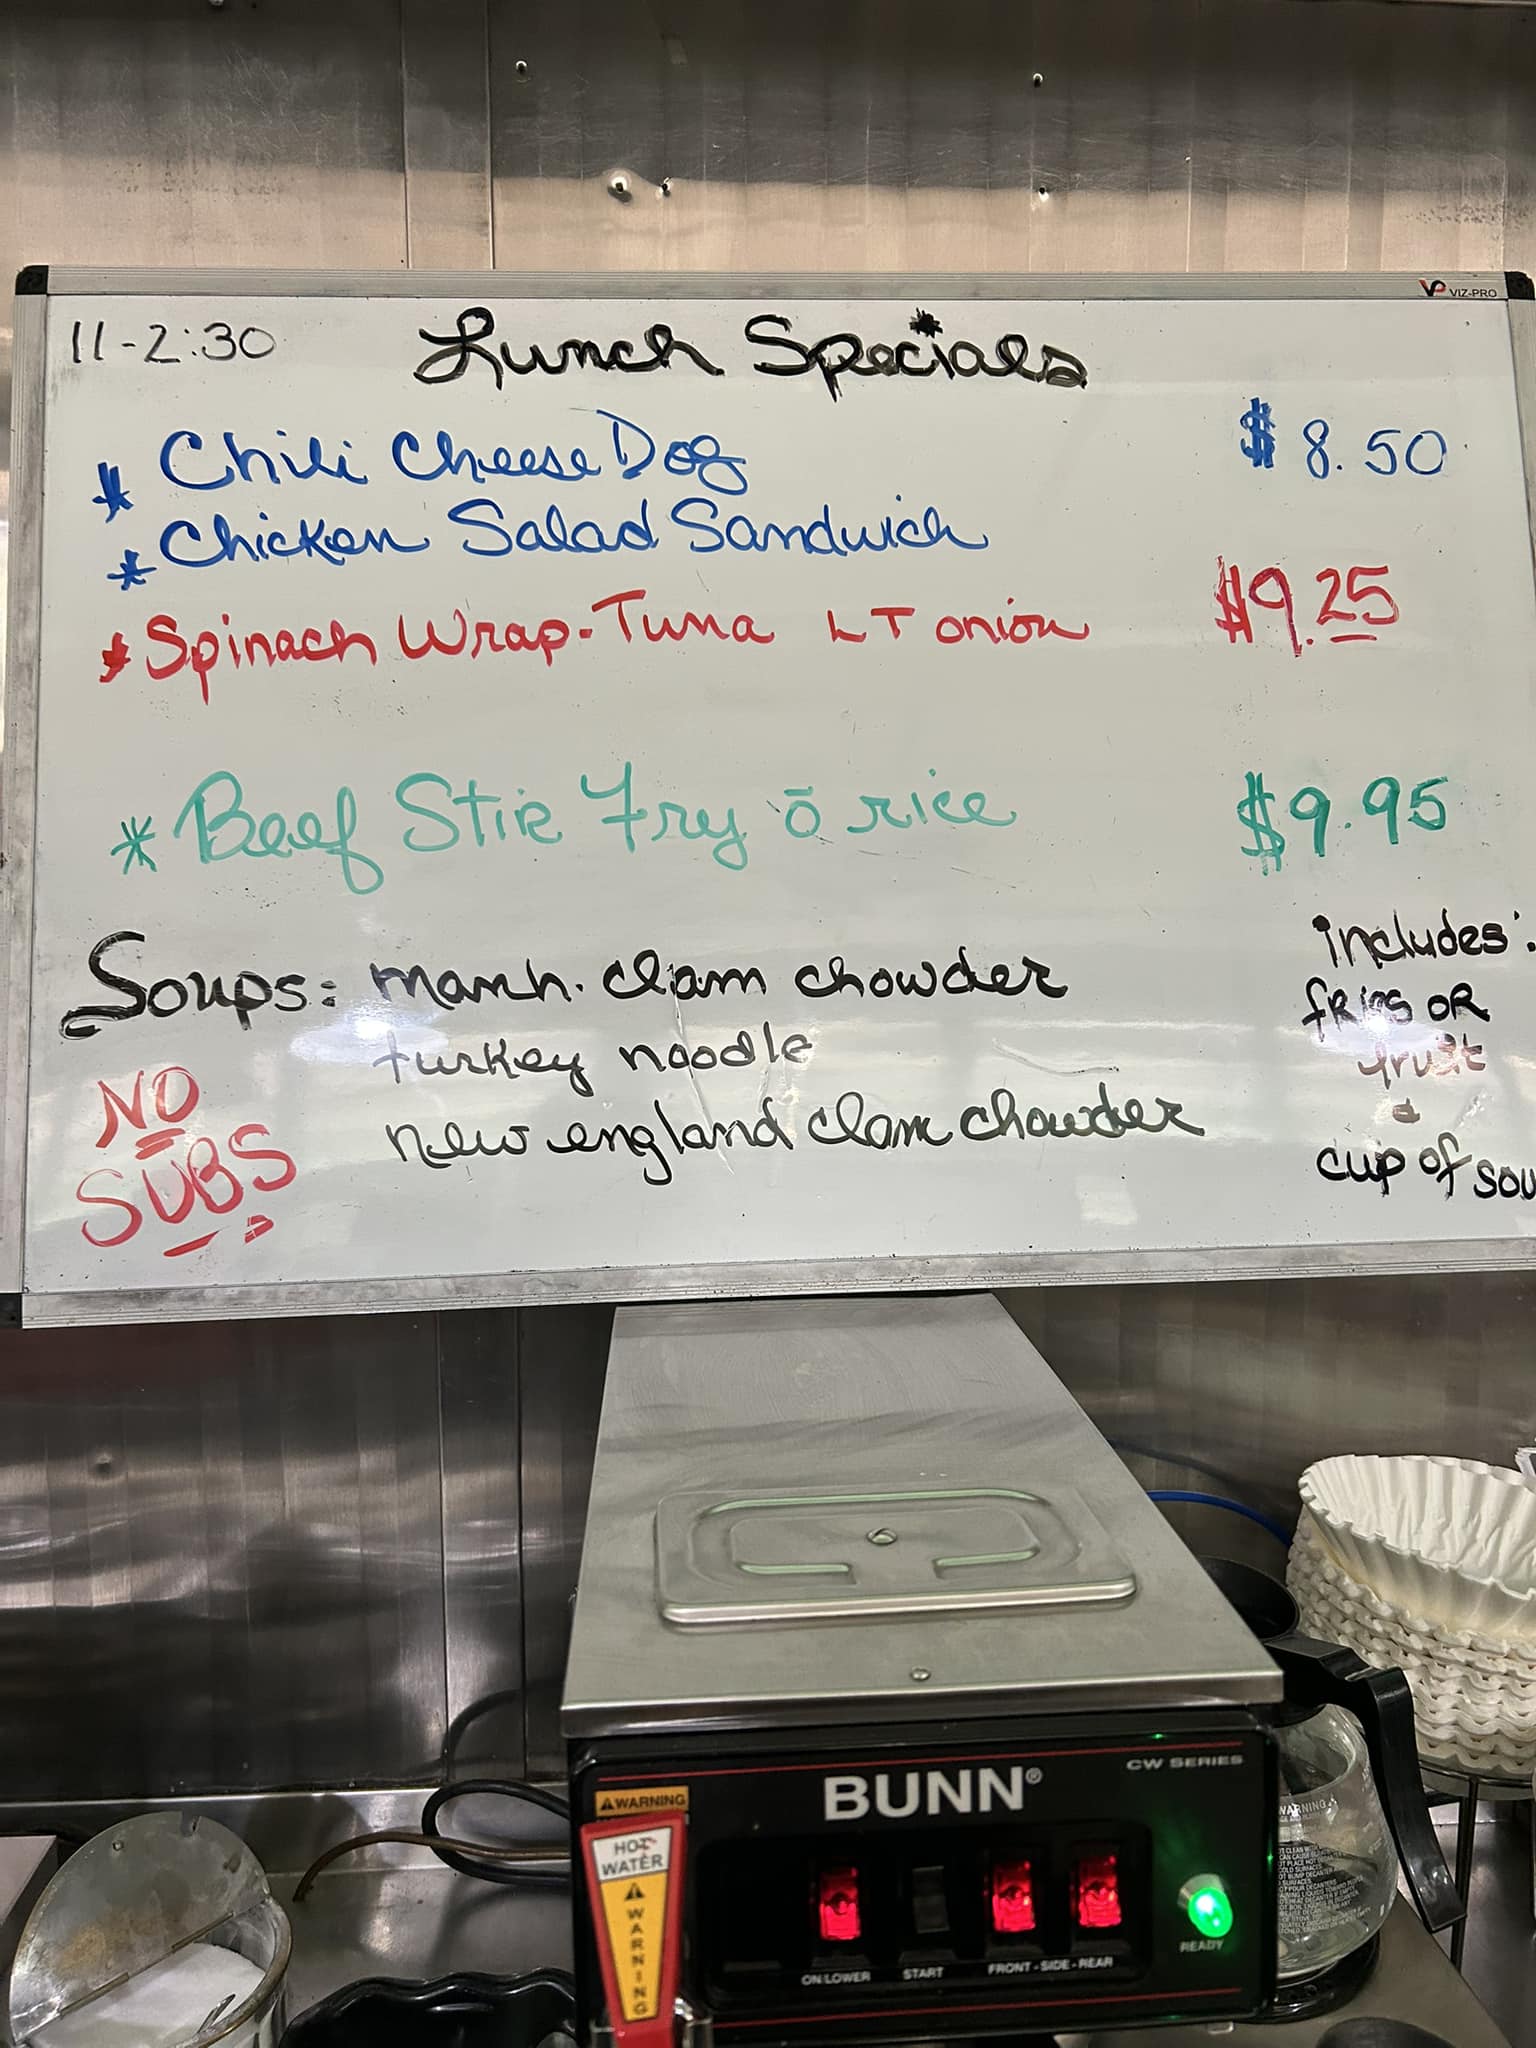 VIZ-PRO
11-2:30 Lunch Specials
* Chili Cheese Dog $8.50
* Chicken Salad Sandwich
* Spinach Wrap-Tuna LT onion $9.25
* Beef Stir Fry ō rice $9.95
Soups: manh. clam chowder
turkey noodle
new england clam chowder
NO
SUBS
includes:
fries OR
fruit
&
cup of sou
BUNN®
CW SERIES
WARNING
HOT
WATER
WARNING
ON/LOWER START FRONT - SIDE - REAR
READY
WARNING